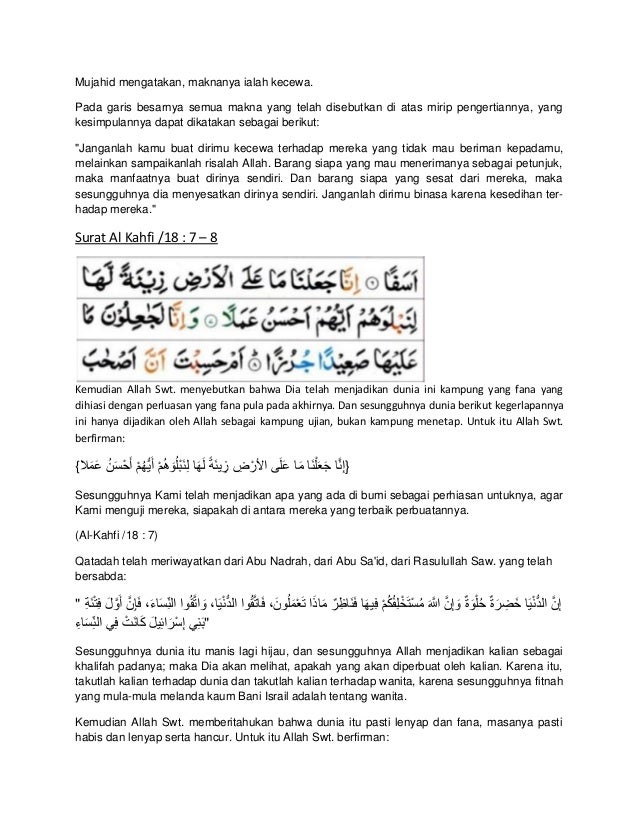 Mujahid mengatakan, maknanya ialah kecewa.
Pada garis besarnya semua makna yang telah disebutkan di atas mirip pengertiannya, yang
kesimpulannya dapat dikatakan sebagai berikut:
"Janganlah kamu buat dirimu kecewa terhadap mereka yang tidak mau beriman kepadamu,
melainkan sampaikanlah risalah Allah. Barang siapa yang mau menerimanya sebagai petunjuk,
maka manfaatnya buat dirinya sendiri. Dan barang siapa yang sesat dari mereka, maka
sesungguhnya dia menyesatkan dirinya sendiri. Janganlah dirimu binasa karena kesedihan ter-
hadap mereka."
Surat Al Kahfi /18 : 7 – 8
اَسَفًا ۝٦ اِنَّا جَعَلْنَا مَا عَلَى الْاَرْضِ زِيْنَةً لَّهَا
لِنَبْلُوَهُمْ اَيُّهُمْ اَحْسَنُ عَمَلًا ۝٧ وَاِنَّا لَجٰعِلُوْنَ مَا
عَلَيْهَا صَعِيْدًا جُرُزًا ۝٨ اَمْ حَسِبْتَ اَنَّ اَصْحٰبَ
Kemudian Allah Swt. menyebutkan bahwa Dia telah menjadikan dunia ini kampung yang fana yang
dihiasi dengan perluasan yang fana pula pada akhirnya. Dan sesungguhnya dunia berikut kegerlapannya
ini hanya dijadikan oleh Allah sebagai kampung ujian, bukan kampung menetap. Untuk itu Allah Swt.
berfirman:
{إِنَّا جَعَلْنَا مَا عَلَى الأرْضِ زِينَةً لَهَا لِنَبْلُوَهُمْ أَيُّهُمْ أَحْسَنُ عَمَلا}
Sesungguhnya Kami telah menjadikan apa yang ada di bumi sebagai perhiasan untuknya, agar
Kami menguji mereka, siapakah di antara mereka yang terbaik perbuatannya.
(Al-Kahfi /18 : 7)
Qatadah telah meriwayatkan dari Abu Nadrah, dari Abu Sa'id, dari Rasulullah Saw. yang telah
bersabda:
إِنَّ الدُّنْيَا خَضِرَةٌ حُلْوَةٌ وَإِنَّ اللَّهَ مُسْتَخْلِفُكُمْ فِيهَا فَنَاظِرٌ مَاذَا تَعْمَلُونَ، فَاتَّقُوا الدُّنْيَا، وَاتَّقُوا النِّسَاءَ، فَإِنَّ أَوَّلَ فِتْنَةِ "
بَنِي إِسْرَائِيلَ كَانَتْ فِي النِّسَاءِ"
Sesungguhnya dunia itu manis lagi hijau, dan sesungguhnya Allah menjadikan kalian sebagai
khalifah padanya; maka Dia akan melihat, apakah yang akan diperbuat oleh kalian. Karena itu,
takutlah kalian terhadap dunia dan takutlah kalian terhadap wanita, karena sesungguhnya fitnah
yang mula-mula melanda kaum Bani Israil adalah tentang wanita.
Kemudian Allah Swt. memberitahukan bahwa dunia itu pasti lenyap dan fana, masanya pasti
habis dan lenyap serta hancur. Untuk itu Allah Swt. berfirman: